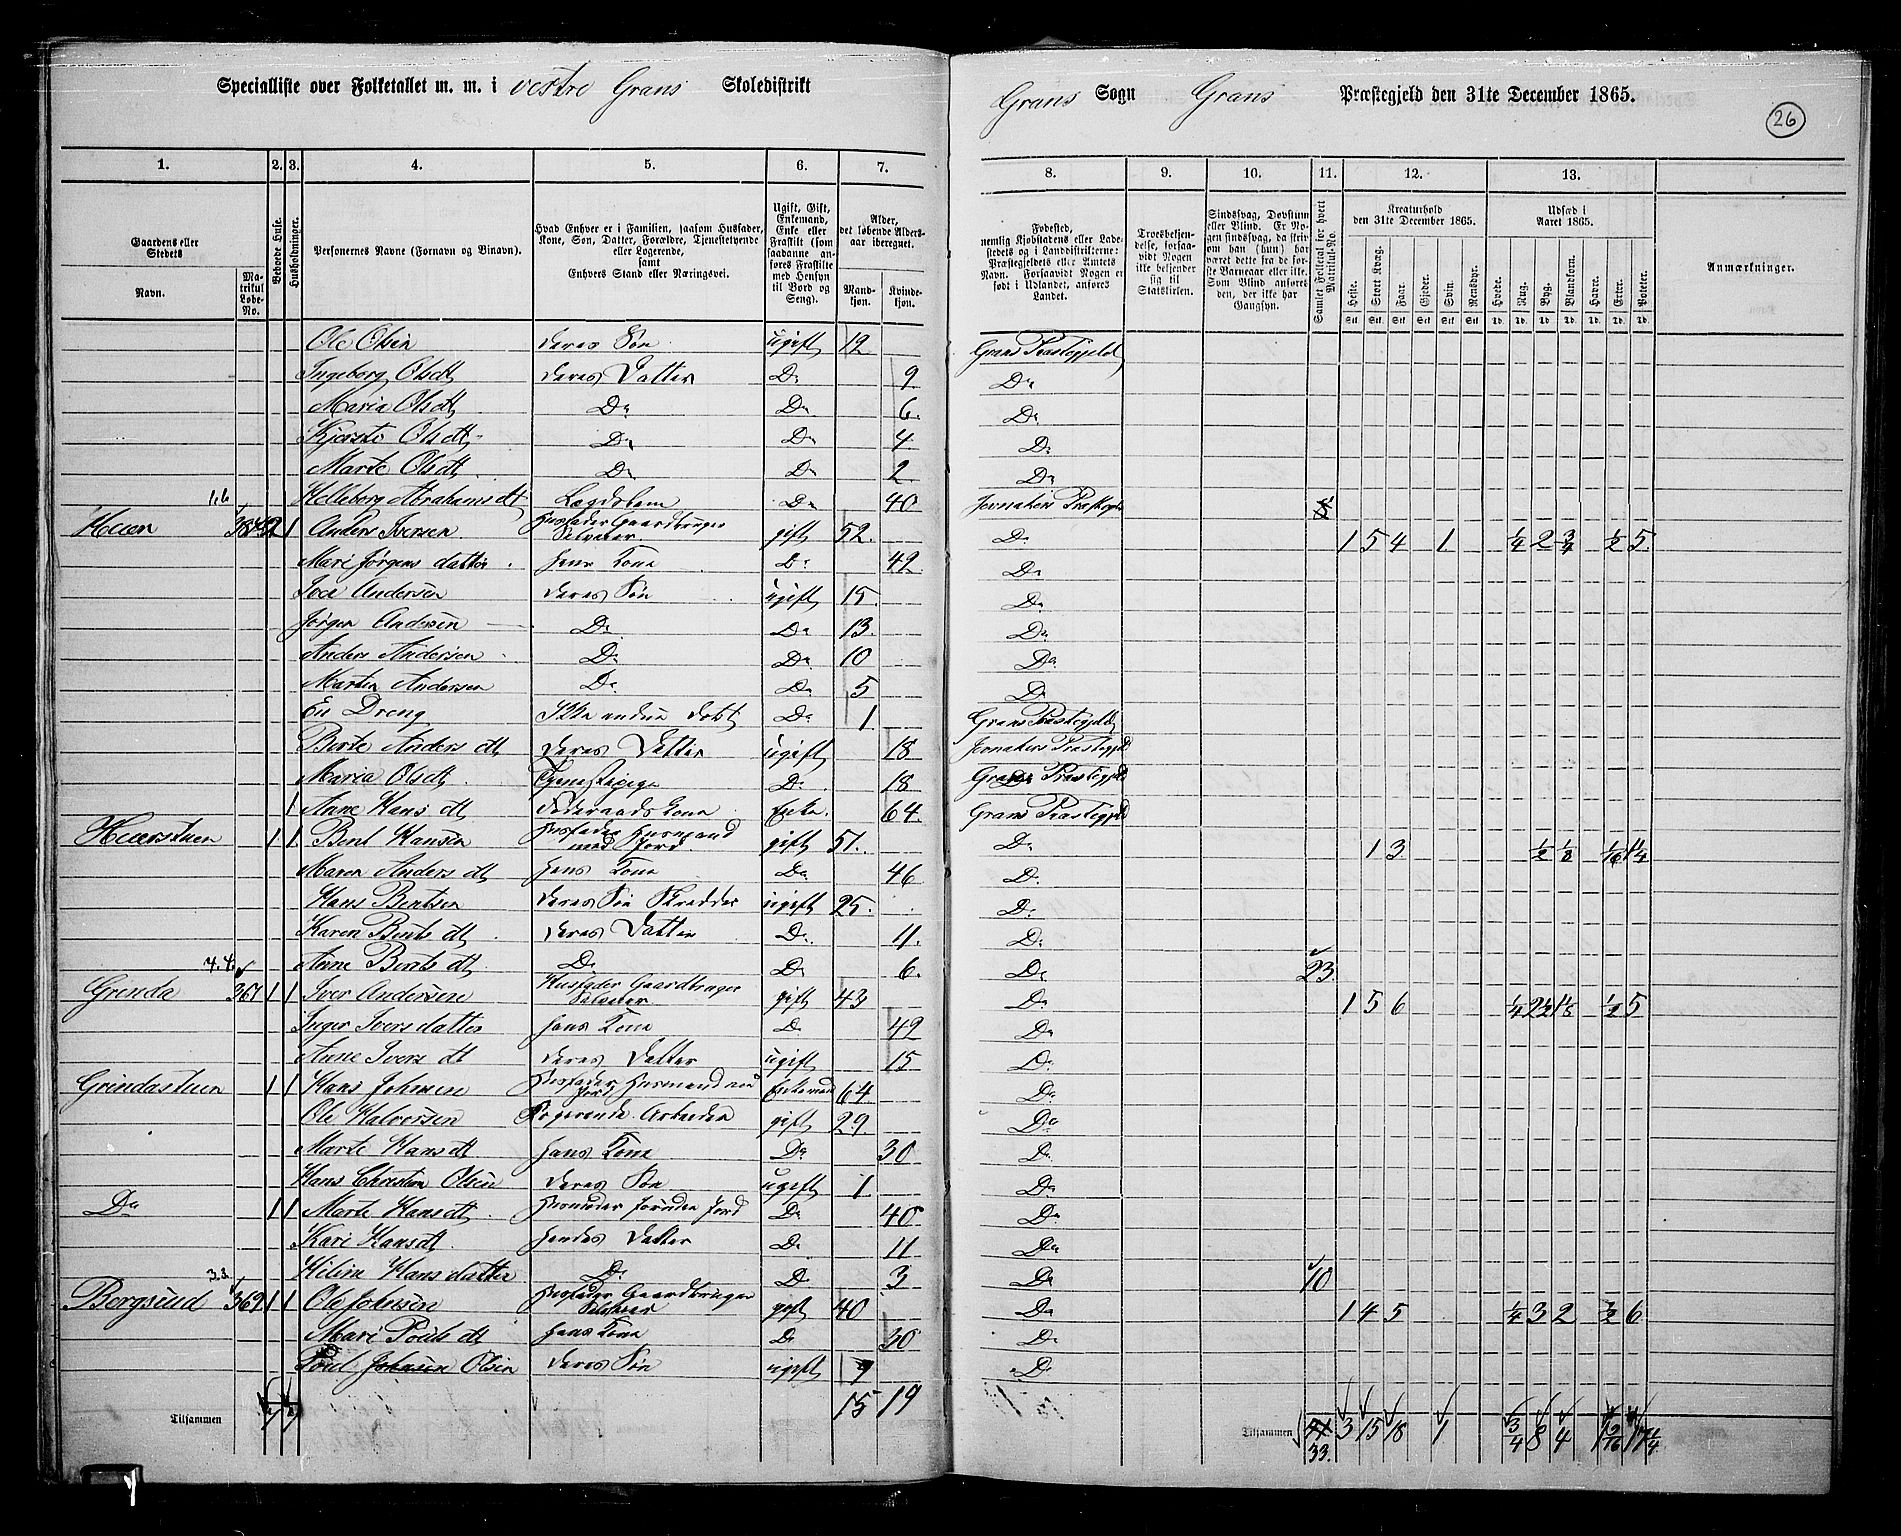 Specialliste over Folketallet m. m. i vestre Grans Skoledistrikt
Grans Sogn Grans Præstegjeld den 31te December 1865.
26
1. 2. 3. 4. 5. 6. 7. 8. 9. 10. 11. 12. 13.
Gaardens eller Stedets Navn. Matrikul Løbe-No.
Beboede Huse.
Husholdninger.
Personernes Navne (Fornavn og Binavn).
Hvad Enhver er i Familien, saasom Husfader, Kone, Søn, Datter, Forældre, Tjenestetyende eller Logerende, samt Enhvers Stand eller Næringsvei.
Ugift, Gift, Enkemand, Enke eller Fraskilt (som saadanne anføres Fraskilte med Hensyn til Bord og Seng).
Alder, det løbende Alders-aar iberegnet. Mandkjøn. Kvindekjøn.
Fødested, nemlig Kjøbstadens eller Ladestedets og i Landdistrikterne: Præstegjeldets eller Amtets Navn. Forsaavidt Nogen er født i Udlandet, anføres Landet.
Troesbekjendelse, forsaavidt Nogen ikke bekjender sig til Statskirken.
Sindssvag, Døvstum eller Blind. Er Nogen sindssvag, da skrives om han (hun) har været dette fra de første Barneaar eller ikke. Som Blind anføres den, der ikke har Gangsyn.
Samlet Folketal for hvert Matrikul-No.
Kreaturhold den 31te December 1865.
Heste. Stort Kvæg. Faar. Gjeder. Svin. Rensdyr.
Udsæd i Aaret 1865.
Hvede. Rug. Byg. Blandkorn. Havre. Erter. Poteter.
Anmærkninger.
Ole Olsen deres Søn ugift 12 Grans Præstegjeld
Ingeborg Olsdt deres Datter Do 9 Do
Maria Olsdt Do Do 6 Do
Kjersti Olsdt Do Do 4 Do
Marte Olsdt Do Do 2 Do
1.6 Helleborg Abrahamsdt Lægdslem Do 40 Jevnakers Præstegjd
Huen 1 Anders Iversen Husfader Gaardbruger Selveier gift 52 Do 1 5 4 1 1/4 2 3/4 1/2 5
Mari Jørgensdatter hans Kone Do 42 Do
Iver Andersen deres Søn ugift 15 Do
Jørgen Andersen Do Do 13 Do
Anders Andersen Do Do 10 Do
Martin Andersen Do Do 5 Do
En Dreng Ikke endnu døbt Do 1 Grans Præstegjeld
Berte Andersdt deres Datter ugift 18 Jevnakers Præstegjeld
Maria Olsdt Tjenestepige Do 18 Grans Præstegjeld
1 Anne Hansdt Føderaads Kone Enke 64 Grans Præstegjeld
Huerstuen 1 1 Bent Hansen Husfader Husmand med Jord gift 51 Do 1 3 1/2 1/8 1/16 1 1/4
Maren Andersdt hans Kone Do 46 Do
Hans Bentsen deres Søn Skredder ugift 25 Do
Karen Bentsdt deres Datter Do 11 Do
4.4 Anne Bentsdt Do Do 6 Do 23
Grinda 361 1 1 Iver Andersen Husfader Gaardbruger Selveier gift 43 Do 1 5 6 1/4 2 1/2 1/2 5
Inger Iversdatter hans Kone Do 42 Do
Anne Iversdt deres Datter ugift 15 Do
Grindastuen 1 1 Hans Johnsen Husfader Husmand med Jord Enkemand 64 Do
Ole Halvorsen Logerende Arbeider gift 29 Do
Marte Hansdt hans Kone Do 30 Do
Hans Christian Olsen deres Søn ugift 1 Do
Do 1 1 Marte Hansdt Husmoder foruden Jord Do 40 Do
Kari Hansdt hendes Datter Do 11 Do
3.3 Heline Hansdatter Do Do 3 Do 10
Bergsund 369 1 1 Ole Johnsen Husfader Gaardbruger Selveier gift 40 Do 1 4 5 1/4 3 2 1/2 6
Mari Poulsdt hans Kone Do 30 Do
Poul Olsen deres Søn ugift 9 Do
Tilsammen 15 19
Tilsammen 33 3 15 18 1 3/4 8 4